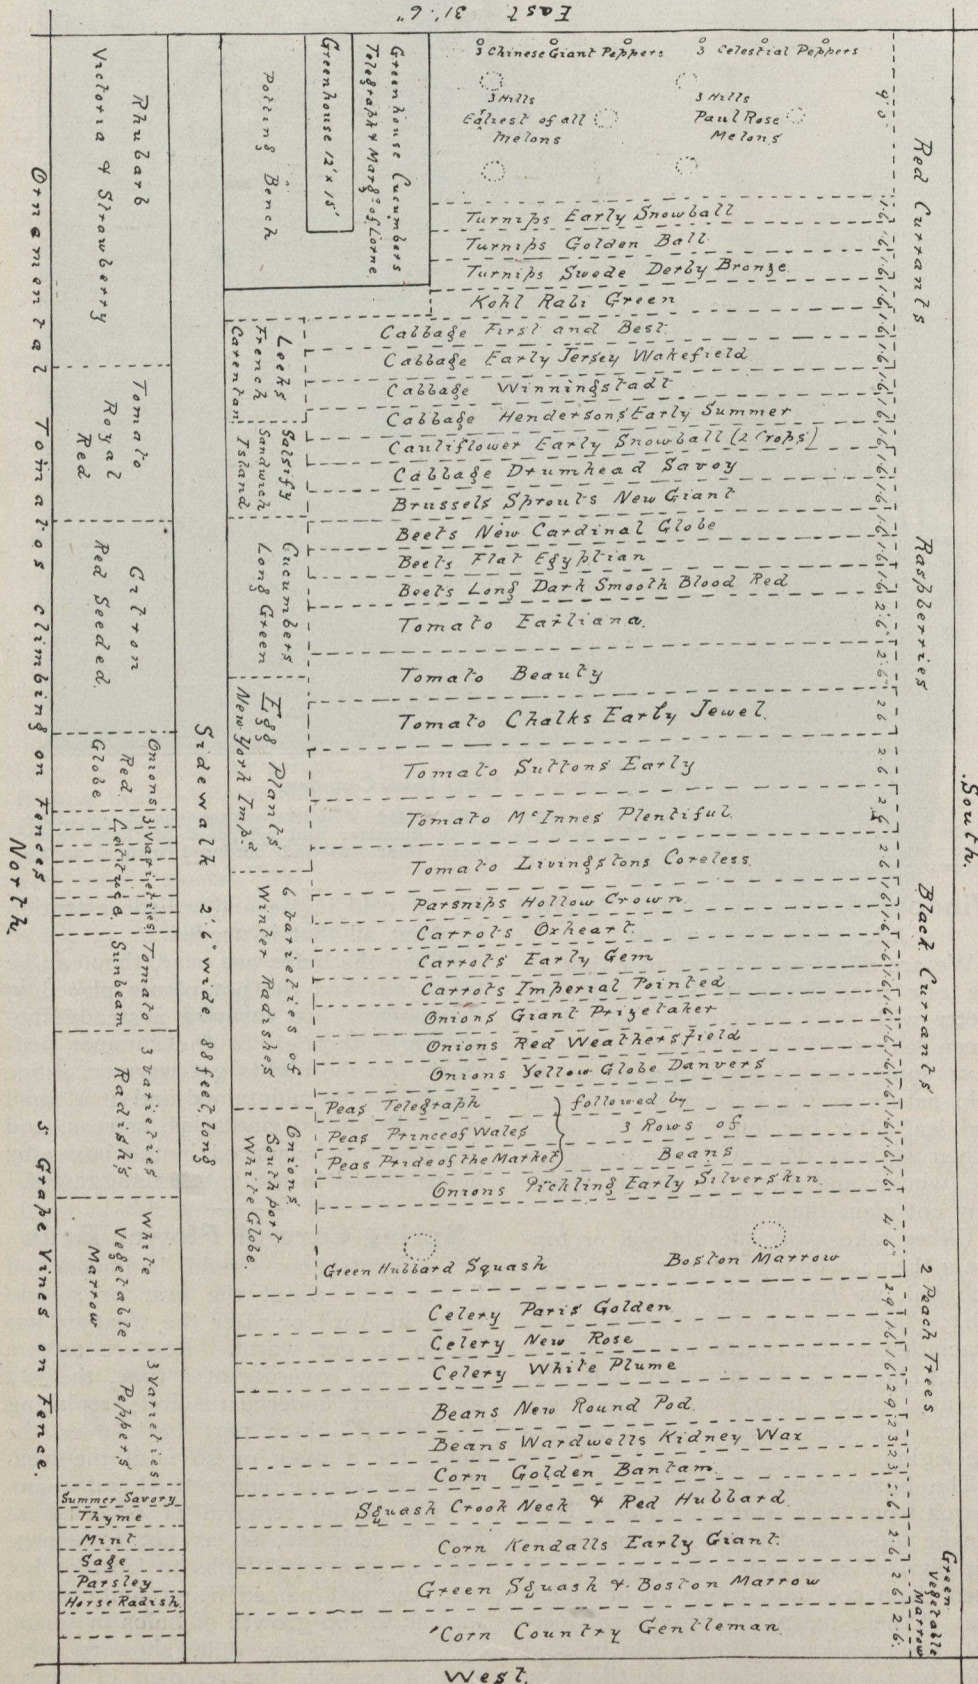 East 31'.6"
3 Chinese Giant Peppers
3 Celestial Peppers
3 Hills
Earliest of all
Melons
3 Hills
Paul Rose
Melons
9'.0"
Greenhouse Cucumbers
Telegraph & Marq: of Lorne
Greenhouse 12' x 15'
Potting Bench
Turnips Early Snowball 1.6
Turnips Golden Ball. 1.6
Turnips Swede Derby Bronze. 1.6
Kohl Rabi Green 1.6
Cabbage First and Best. 1.6
Cabbage Early Jersey Wakefield 1.6
Cabbage Winningstadt 1.6
Cabbage Hendersons Early Summer 1.6
Cauliflower Early Snowball (2 Crops) 1.6
Cabbage Drumhead Savoy 1.6
Brussels Sprouts New Giant 1.6
Beets New Cardinal Globe 1.6
Beets Flat Egyptian 1.6
Beets Long Dark Smooth Blood Red 1.6
Tomato Earliana. 2.6
Tomato Beauty 2.6
Tomato Chalks Early Jewel. 2.6
Tomato Suttons Early 2.6
Tomato McInnes Plentiful. 2.6
Tomato Livingstons Coreless. 2.6
Parsnips Hollow Crown 1.6
Carrots Oxheart. 1.6
Carrots Early Gem 1.6
Carrots Imperial Pointed 1.6
Onions Giant Prizetaker 1.6
Onions Red Weathersfield 1.6
Onions Yellow Globe Danvers 1.6
Peas Telegraph
Peas Prince of Wales
Peas Pride of the Market
followed by
3 Rows of
Beans
1.6
1.6
1.6
Onions Pickling Early Silverskin. 1.6
Green Hubbard Squash
Boston Marrow
4'.6"
Celery Paris Golden. 2.9
Celery New Rose 1.6
Celery White Plume 1.6
Beans New Round Pod. 2.9
Beans Wardwells Kidney Wax 2.3
Corn Golden Bantam. 2.3
Squash Crook Neck & Red Hubbard
Corn Kendalls Early Giant. 2.6
Green Squash & Boston Marrow 2.6
Corn Country Gentleman. 2.6.
Leeks
French
Carentan
Salsify
Sandwich
Island
Cucumbers
Long Green
Egg Plants
New York Imp'd
6 varieties of
Winter Radishes
Onions
Southport
White Globe.
Sidewalk 2'.6" wide 88 feet long
Rhubarb
Victoria & Strawberry
Tomato
Royal
Red
Citron
Red Seeded.
Onions
Red
Globe
3 Varieties
Lettuce.
Tomato
Sunbeam
3 varieties
Radish's
White
Vegetable
Marrow
3 Varieties
Peppers
Summer Savory
Thyme
Mint
Sage
Parsley
Horse Radish
Ornamental Tomatos climbing on Fences
5 Grape Vines on Fence.
North.
Red Currants
Raspberries
Black Currants
2 Peach Trees
Green
Vegetable
Marrow
South.
West.